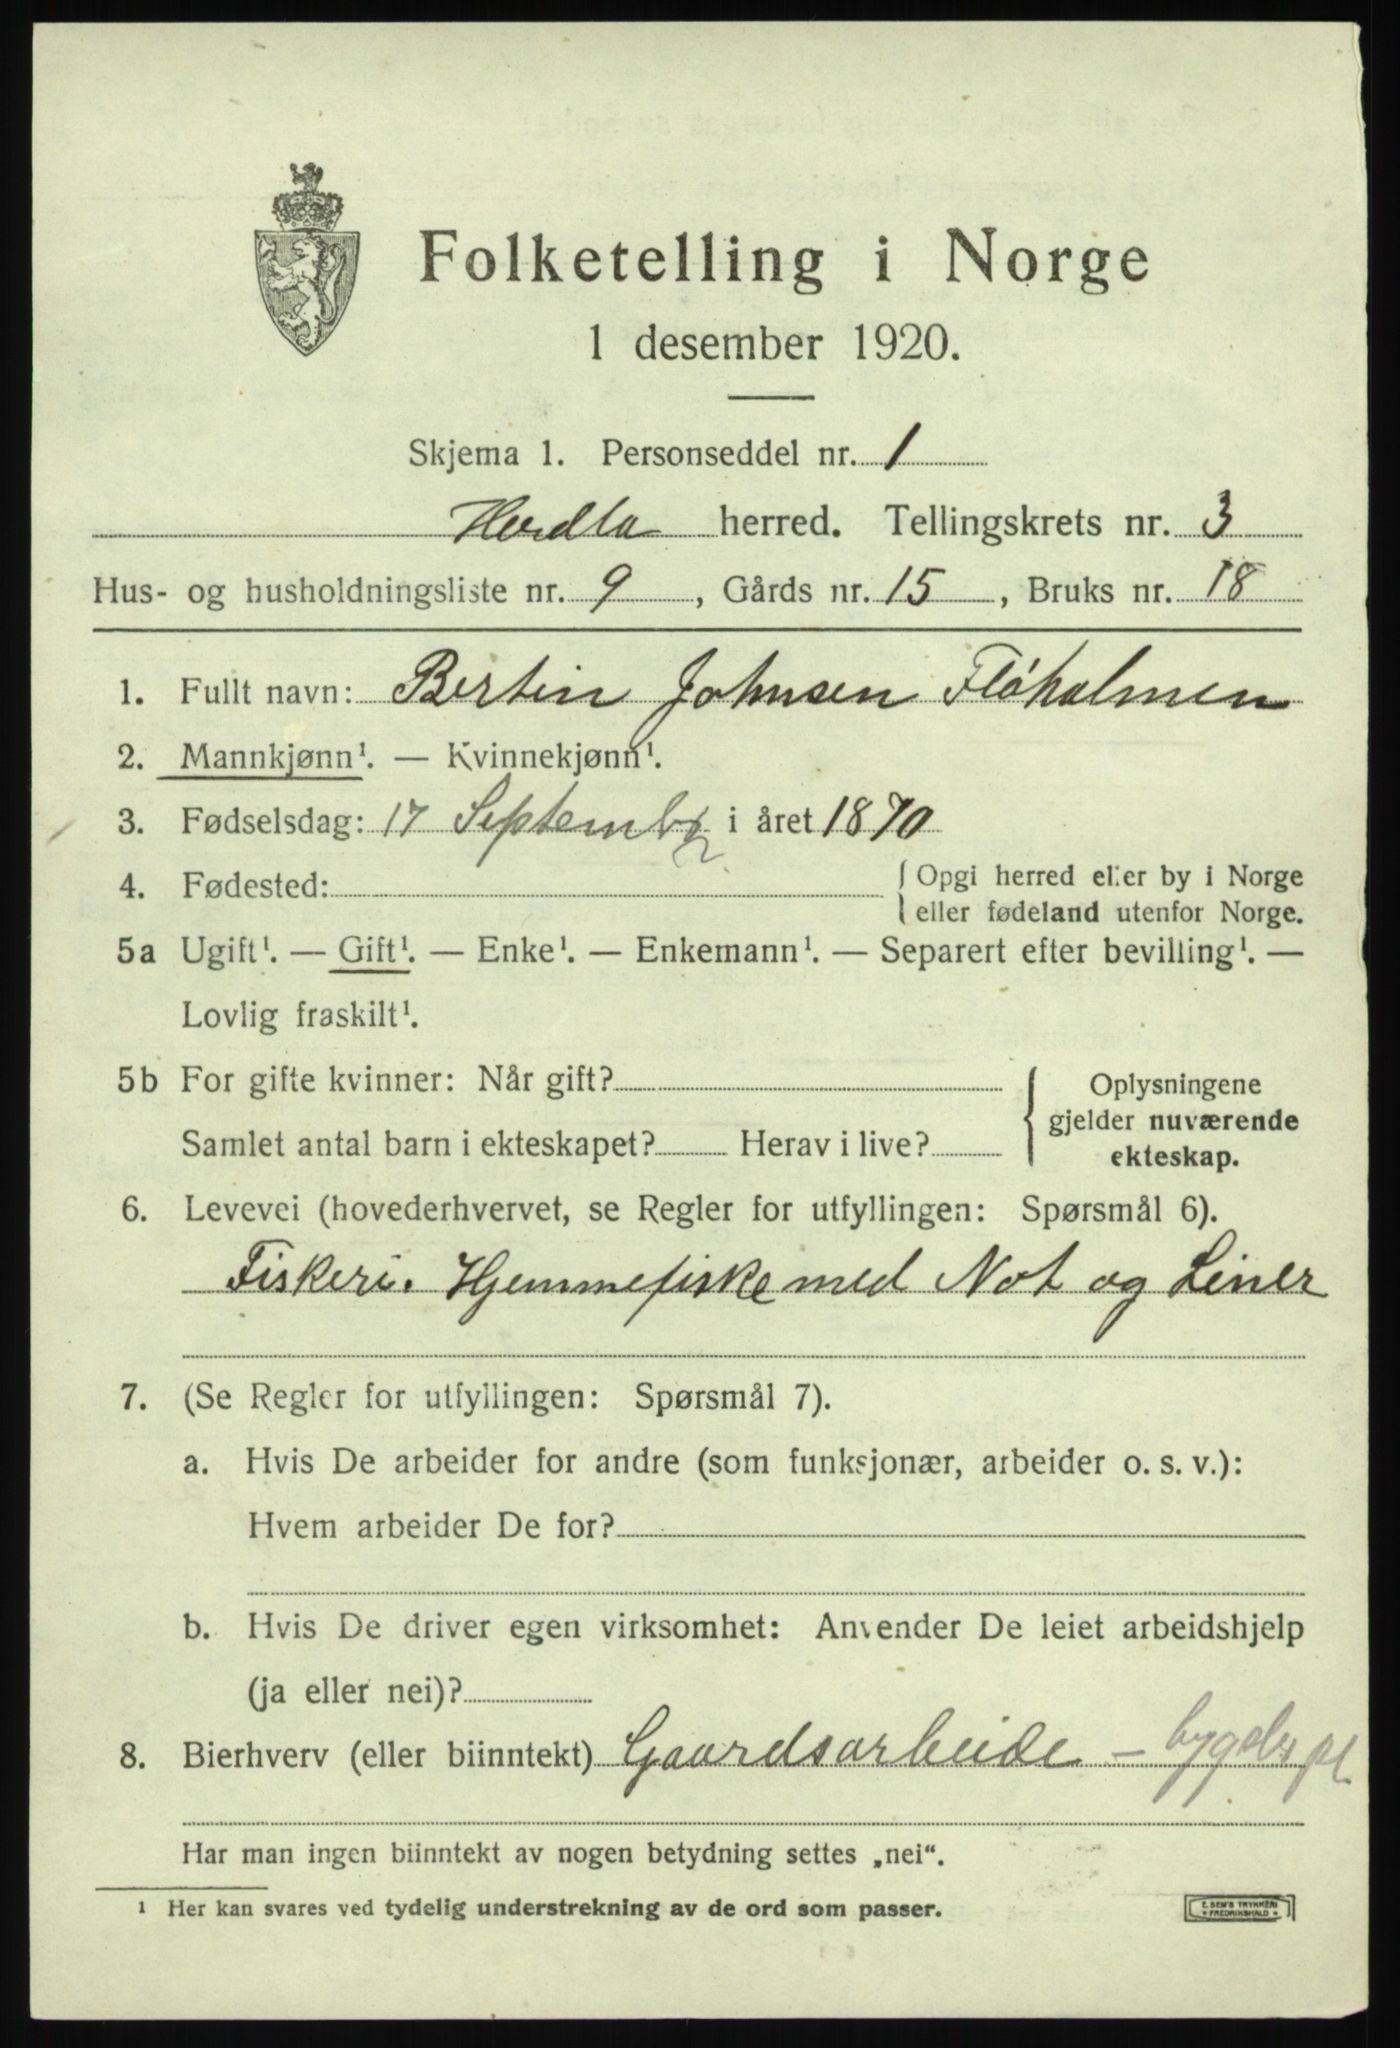 Folketelling i Norge
1 desember 1920.
Skjema 1. Personseddel nr. 1
Herdla herred. Tellingskrets nr. 3
Hus- og husholdningsliste nr. 9, Gårds nr. 15, Bruks nr. 18
1. Fullt navn: Bertin Johnsen Fløholmen
2. Mannkjønn¹. — Kvinnekjønn¹.
3. Fødselsdag: 17 September i året 1870
4. Fødested: { Opgi herred eller by i Norge
eller fødeland utenfor Norge.
5a Ugift¹. — Gift¹. — Enke¹. — Enkemann¹. — Separert efter bevilling¹. —
Lovlig fraskilt¹.
5b For gifte kvinner: Når gift? { Oplysningene
gjelder nuværende
Samlet antal barn i ekteskapet? Herav i live?
ekteskap.
6. Levevei (hovederhvervet, se Regler for utfyllingen: Spørsmål 6).
Fiskeri. Hjemmefiske med Not og Liner
7. (Se Regler for utfyllingen: Spørsmål 7).
a. Hvis De arbeider for andre (som funksjonær, arbeider o. s. v.):
Hvem arbeider De for?
b. Hvis De driver egen virksomhet: Anvender De leiet arbeidshjelp
(ja eller nei)?
8. Bierhverv (eller biinntekt) Gaardsarbeide –
Har man ingen biinntekt av nogen betydning settes „nei“.
¹ Her kan svares ved tydelig understrekning av de ord som passer.
E. SEM'S TRYKKERI
FREDRIKSHALD